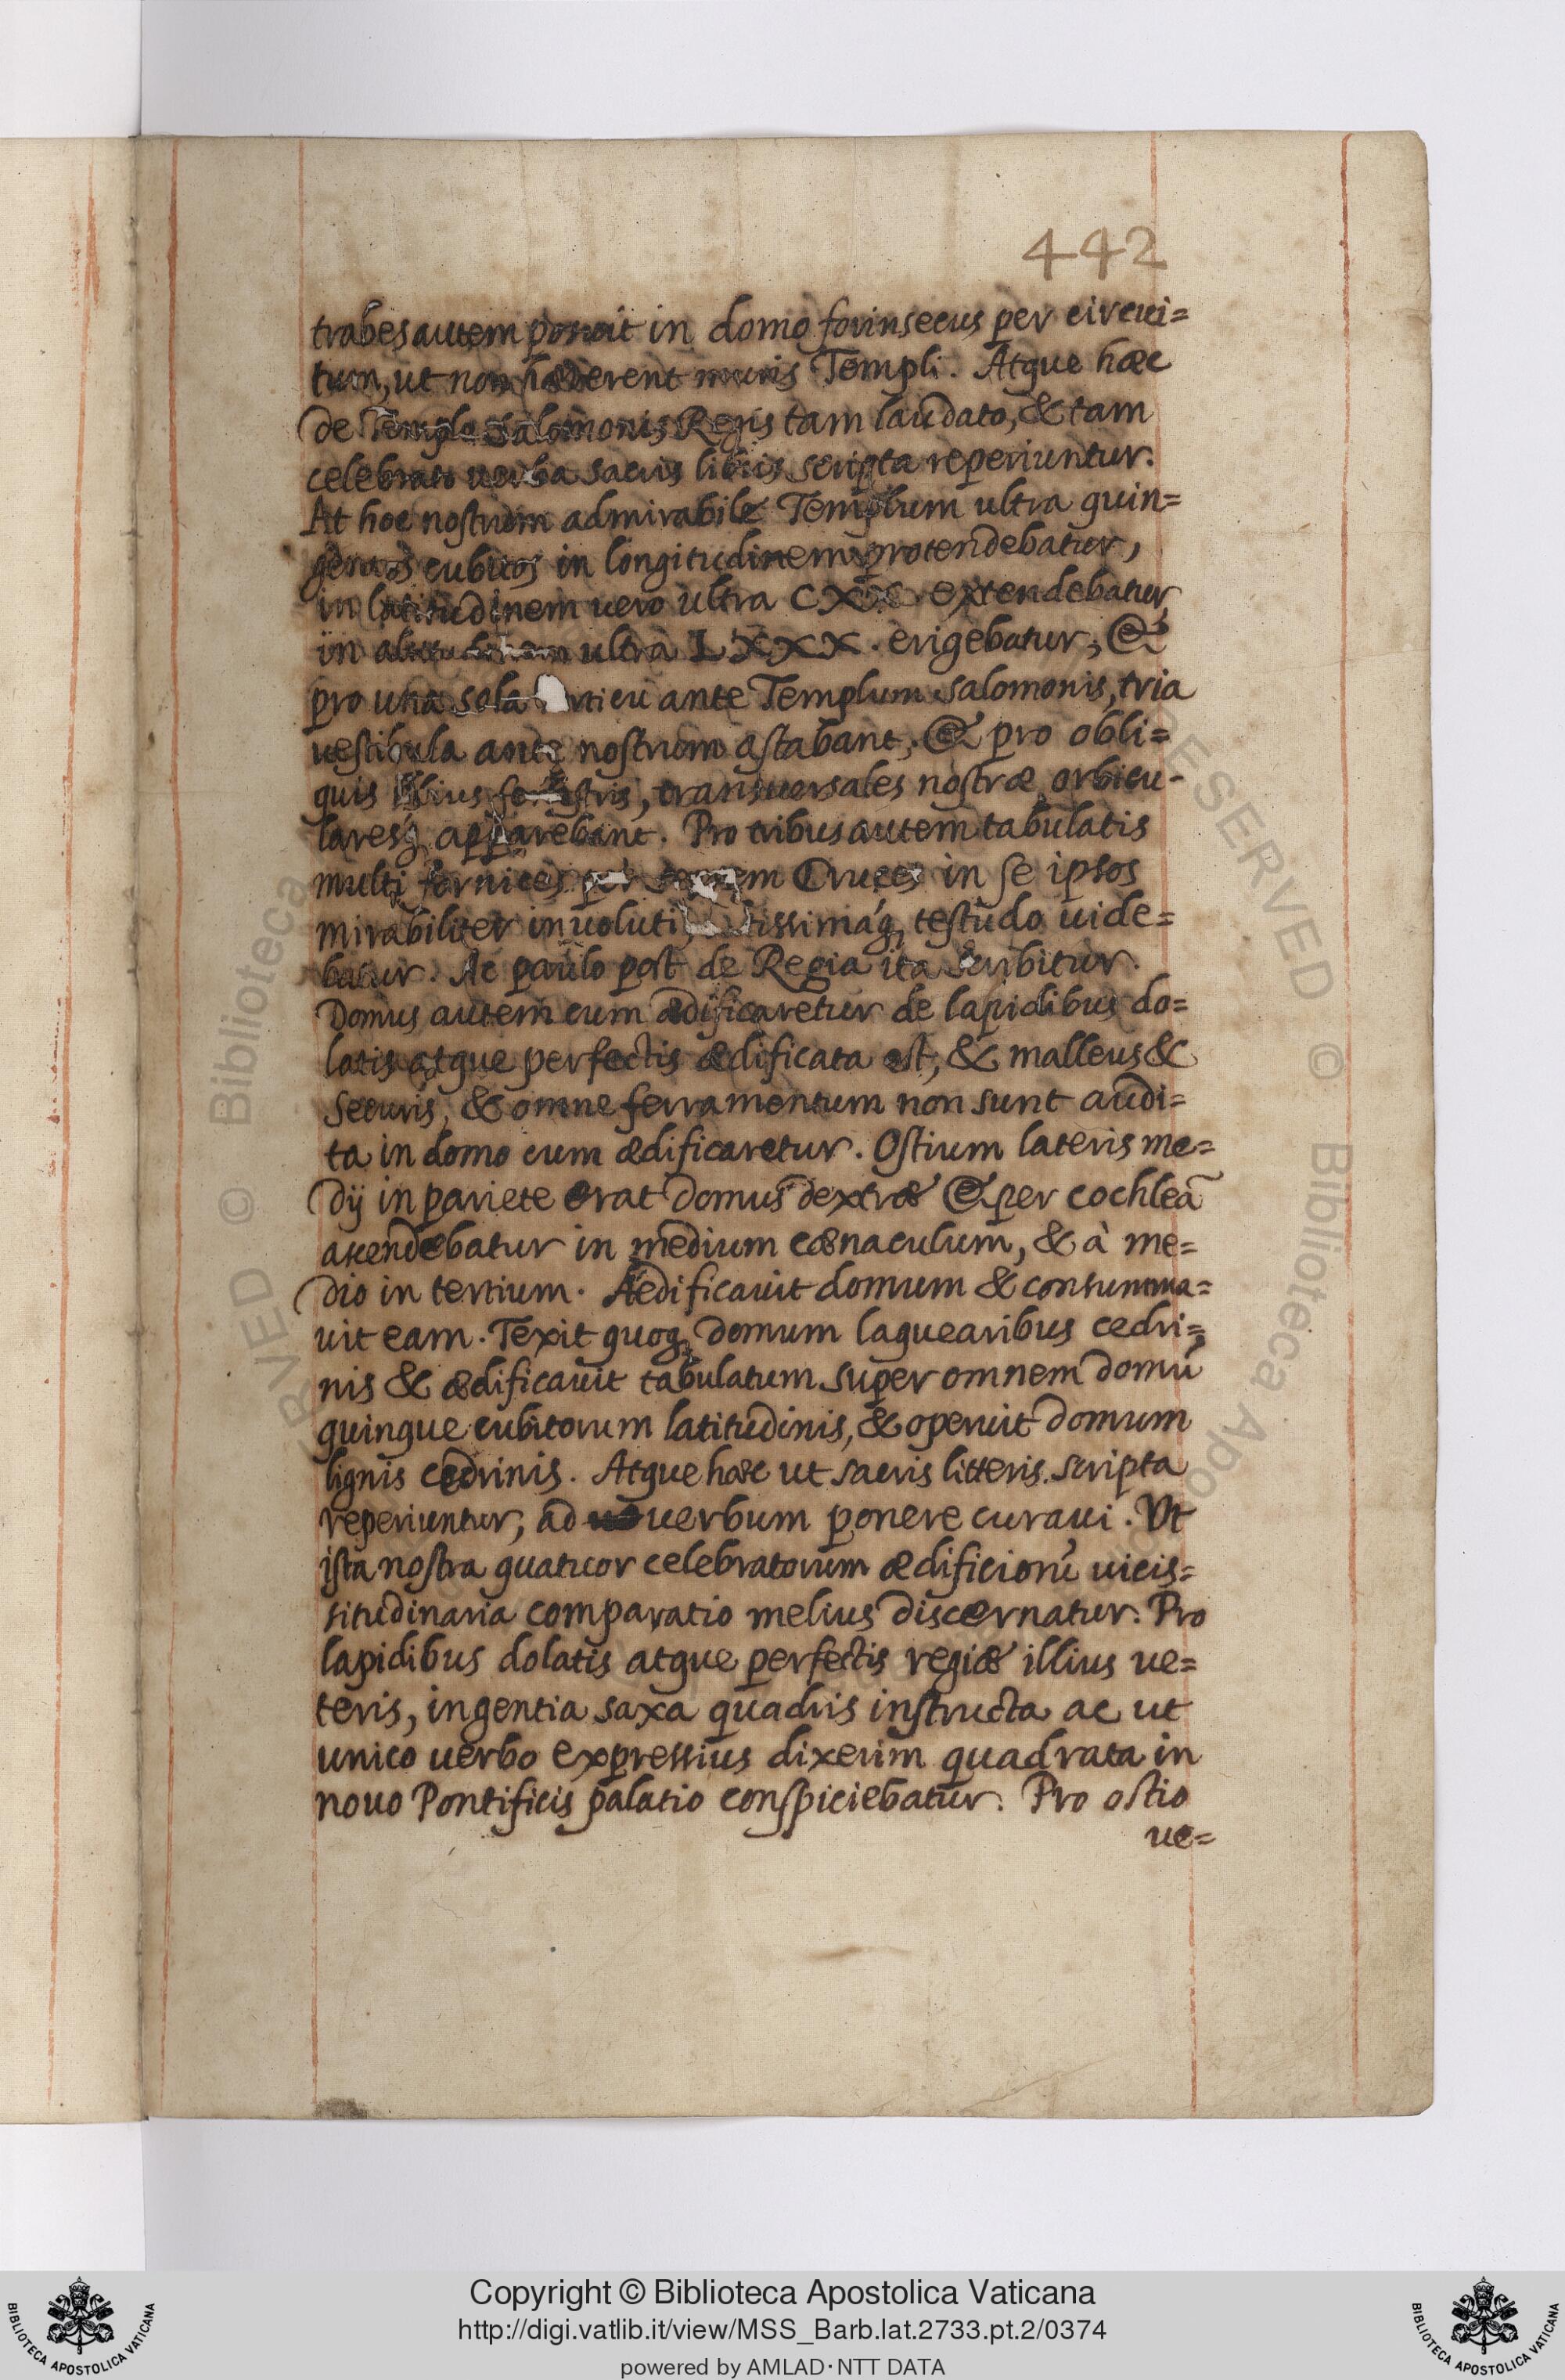 442
trabes autem posuit in domo forinsecus per circui=
tum, ut non hærerent muris Templi. Atque hæc
de Templo Salomonis Regis tam laudato, & tam
celebrato verba sacris libris scripta reperiuntur.
At hoc nostrum admirabile Templum ultra quin=
gentos cubitos in longitudinem protendebatur,
in latitudinem uero ultra extendebatur,
in ultra LXXX. erigebatur, &
pro una sola ante Templum Salomonis, tria
uestibula ante nostrum astabant, & pro obli=
quis illius fenestris, transuersales nostræ orbicu-
laresq́; apparebant. Pro tribus autem tabulatis
multi fornices per Cruces in se ipsos
mirabiliter inuoluti, testudo uide=
batur. Ac paulo post de Regia ita scribitur.
Domus autem cum ædificaretur de lapidibus do=
latis atque perfectis ædificata est, & malleus &
securis, & omne ferramentum non sunt audi=
ta in domo cum ædificaretur. Ostium lateris me=
dij in pariete erat domus dextræ & per cochleā
ascendebatur in medium cœnaculum, & à me=
dio in tertium. Aedificauit domum & consumma=
uit eam. Texit quoq; domum laquearibus cedri=
nis & ædificauit tabulatum super omnem domū
quinque cubitorum latitudinis, & operuit domum
lignis cedrinis. Atque hæc ut sacris litteris scripta
reperiuntur, ad uerbum ponere curaui. Vt
ista nostra quatuor celebratorum ædificiorū uicis=
situdinaria comparatio melius discernatur. Pro
lapidibus dolatis atque perfectis regiæ illius ue=
teris, ingentia saxa quadris instructa ac ut
unico uerbo expressius dixerim quadrata in
nouo Pontificis palatio conspiciebatur. Pro ostio
ue=
RESERVED © Biblioteca Apo
RVED © Biblioteca
BIBLIOTECA APOSTOLICA VATICANA
Copyright © Biblioteca Apostolica Vaticana
http://digi.vatlib.it/view/MSS_Barb.lat.2733.pt.2/0374
powered by AMLAD·NTT DATA
BIBLIOTECA APOSTOLICA VATICANA